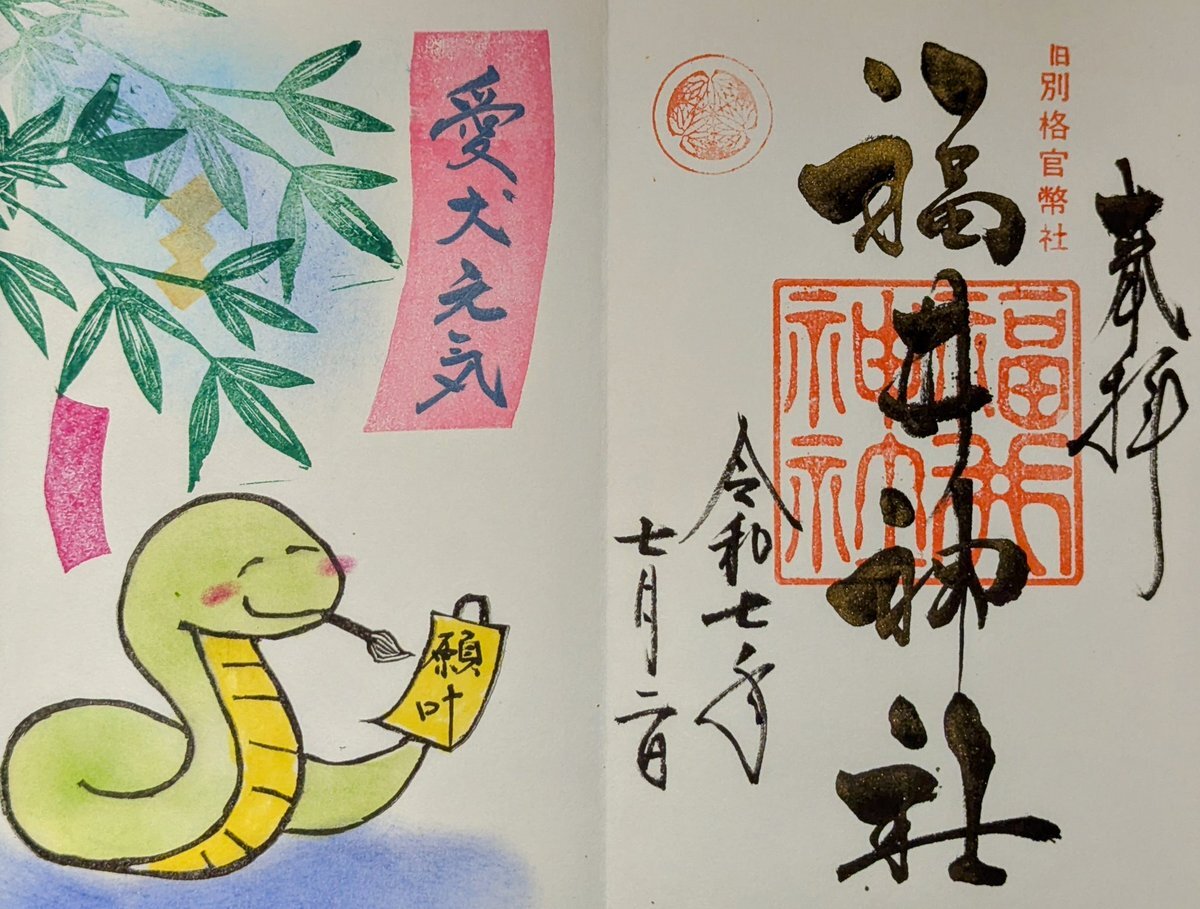 奉拝
旧別格官幣社
福井神社
福井
神社
令和七年
七月二日
愛犬元気
願叶